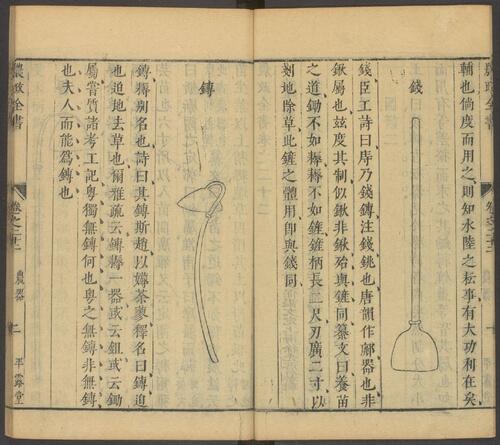 輔也倘度而用之則知水陸之耘事有大功利在矣
錢
錢臣工詩曰庤乃錢鎛注錢銚也唐韻作器也非
鍬屬也玆度其制似鍬非鍬殆與鏟同纂文曰養苗
之道鋤不如耨耨不如鏟鏟柄長二尺刃廣二寸以
剗地除草此鏟之體用卽與錢同
鎛
鎛耨別名也詩曰其鎛斯趙以薅荼蓼釋名曰鎛迫
也迫地去草也爾雅疏云鎛耨一器或云鉏或云鋤
屬嘗質諸考工記粵獨無鎛何也粵之無鎛非無鎛
也夫人而能爲鎛也
農政全書 卷之二十二 農器 二 平露堂